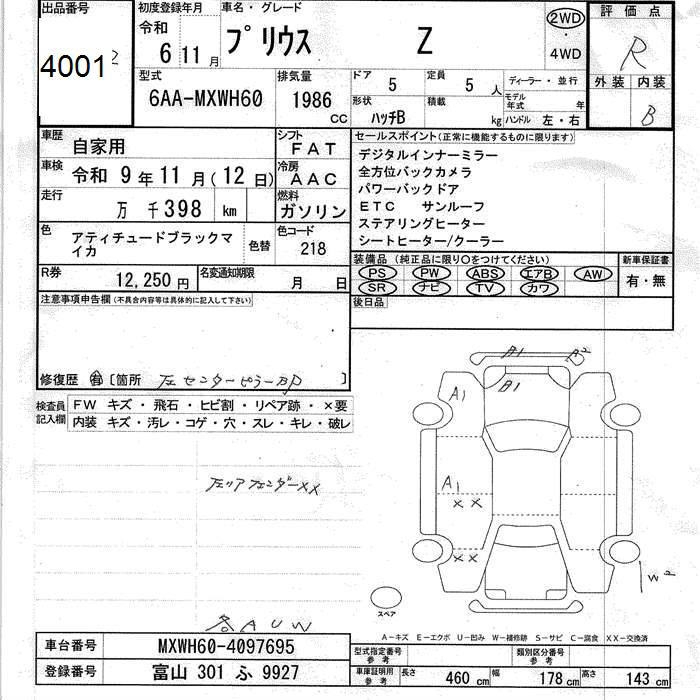 出品番号
4001
初度登録年月
令和
6 11 月
車名・グレード
プリウス Z
2WD
4WD
評価点
R
外装 内装
B
型式
6AA-MXWH60
排気量
1986
CC
ドア
5
定員
5 人
形状
ハッチB
積載
kg
ディーラー・並行
モデル年式 年
ハンドル 左・右
車歴
自家用
シフト
FAT
車検
令和 9 年 11 月 ( 12 日)
冷房
AAC
走行
万 千 398 km
燃料
ガソリン
色
アティチュードブラックマイカ
色替
色コード
218
R券
12,250 円
名変通知期限
月 日
セールスポイント(正常に機能するものに限ります)
デジタルインナーミラー
全方位バックカメラ
パワーバックドア
ETC サンルーフ
ステアリングヒーター
シートヒーター/クーラー
装備品 (純正品に限り〇をつけてください)
PS PW ABS エアB AW
SR ナビ TV カワ
新車保証書
有・無
後日品
注意事項申告欄(不具合内容等は具体的に記入して下さい)
修復歴 有 〔箇所 左センターピラーBP 〕
検査員記入欄
FW キズ・飛石・ヒビ割・リペア跡・×要
内装 キズ・汚レ・コゲ・穴・スレ・キレ・破レ
左リアフェンダーXX
A1
B1
A1
A2
B1
XX
XX
WP
スペア
AUW
A-キズ E-エクボ U-凹み W-補修跡 S-サビ C-腐食 XX-交換済
車台番号
MXWH60-4097695
登録番号
富山 301 ふ 9927
型式指定番号
参考
類別区分番号
参考
車庫証明用
参考
長さ 460 cm 幅 178 cm 高さ 143 cm